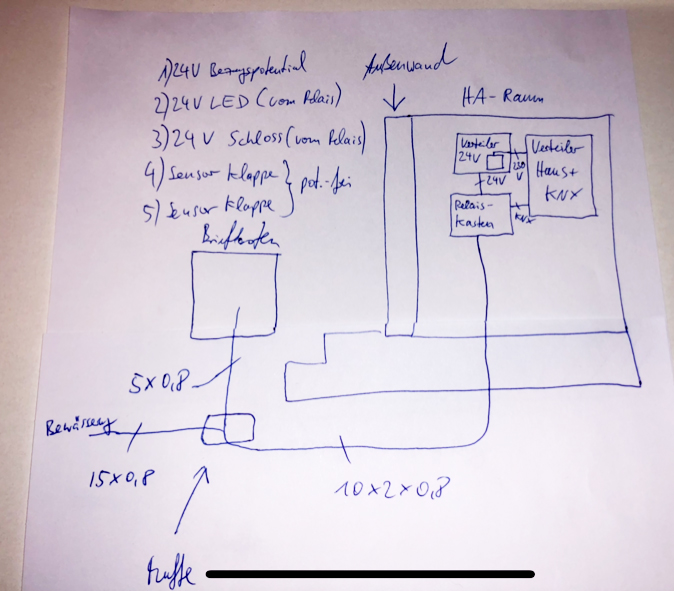 1) 24V Bezugspotential
2) 24V LED (vom Relais)
3) 24V Schloss (vom Relais)
4) Sensor Klappe
5) Sensor Klappe
pot.-frei
Außenwand
HA-Raum
Verteiler
24V
230
V
Verteiler
Haus+
KNX
24V
Relais-
kasten
KNX
Briefkasten
5x0,8
Bewässerung
15x0,8
10x2x0,8
Muffe